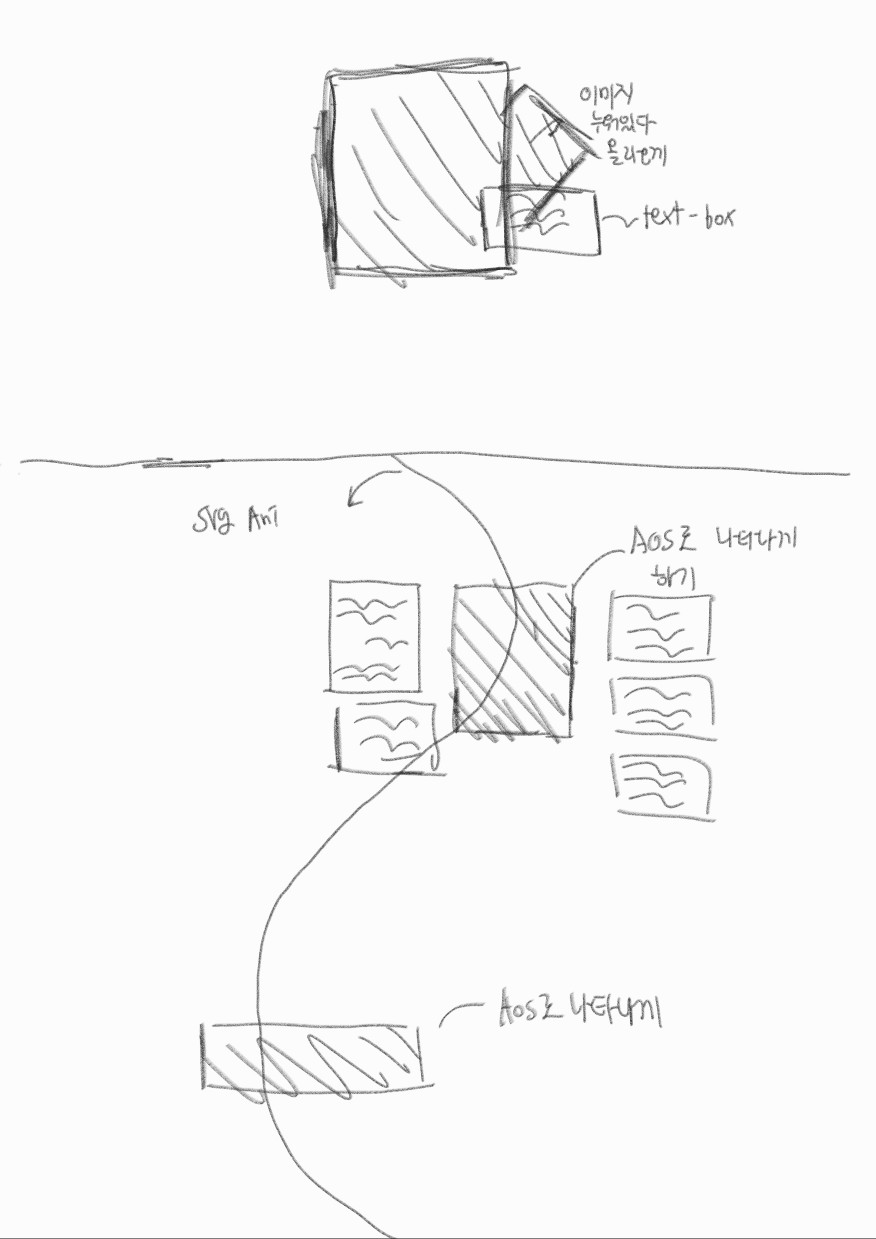 이미지
누워있다
올라오게
text-box
SVG Ani
AOS로 나타나게
하기
AOS로 나타나게